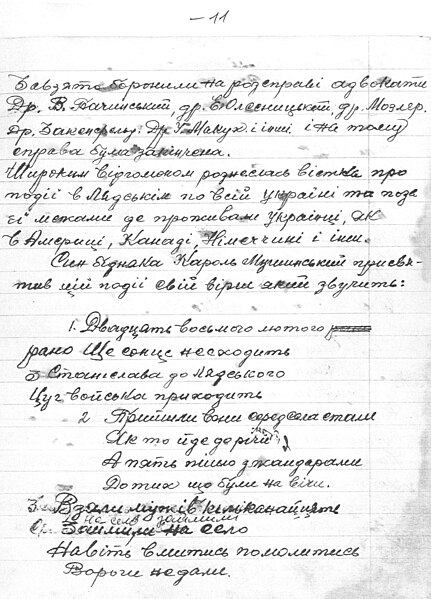 – 11
Завзято боронили на розправі адвокати
Др. В. Бачинський, др. Е. Олесницький, др. Мозлер.
Др. Бакенфельд. Др. Г. Макух і інші. і на тому
справа була закінчена.
Широким відгомоком рознеслась вістка про
події в Лядськім по всій Україні та поза
її межами де проживали українці, як
в Америці, Канаді, Німеччині і інш.
Син бідняка Кароль Мушинський присвя-
тив цій події свій вірш який звучить:
1. Двадцять восьмого лютого
рано Ще сонце не сходить
З Станіслава до Лядського
Цуг войська приходить
2 Прийшли вони серед села стали
Як то йде дорогй
А пять пішло з жандарами
До тих що були на вічи.
3. Взяли мужів кільканайцять
на село займили
Займили на село
Навіть вмитись помолитись
Вороги не дали.